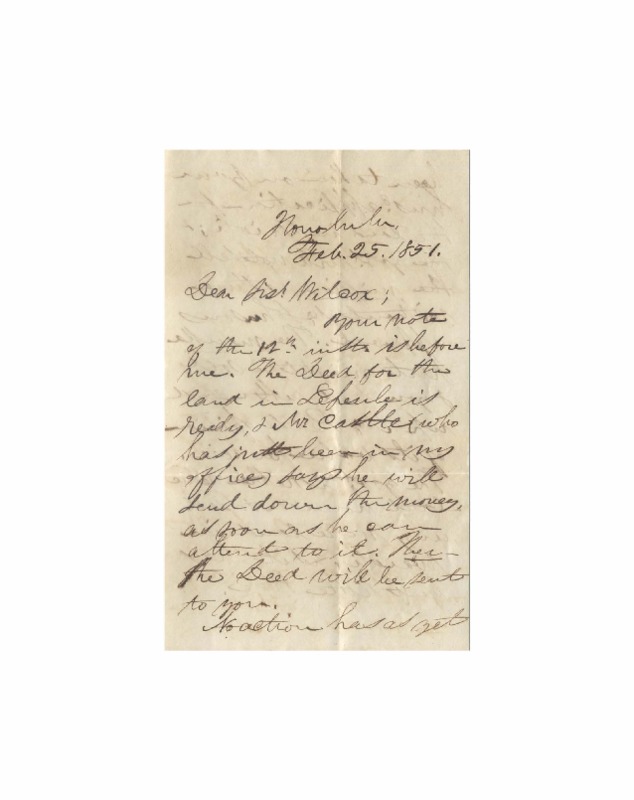 Honolulu,
Feb. 25. 1851.
Dear Wilcox;
Your note
of the 12th inst. is before
me. The Deed for the
land in is
ready, & Mr Castle (who
has just been in my
office) says he will
send down the money,
as soon as he can
attend to it. Then
the Deed will be sent
to you.
No action has as yet